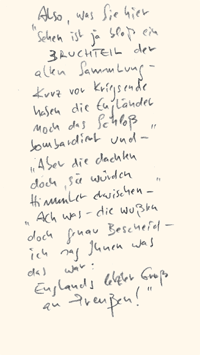 Also, was Sie hier
"Sehen ist ja bloß ein
BRUCHTEIL der
alten Sammlung –
Kurz vor Kriegsende
haben die Engländer
noch das Schloß
bombardiert und –"
"Aber die dachten
doch, sie würden
Himmler erwischen –
"Ach was – die wußten
doch genau Bescheid –
ich sag Ihnen was
das war:
Englands letzter Gruß
an Preußen!"